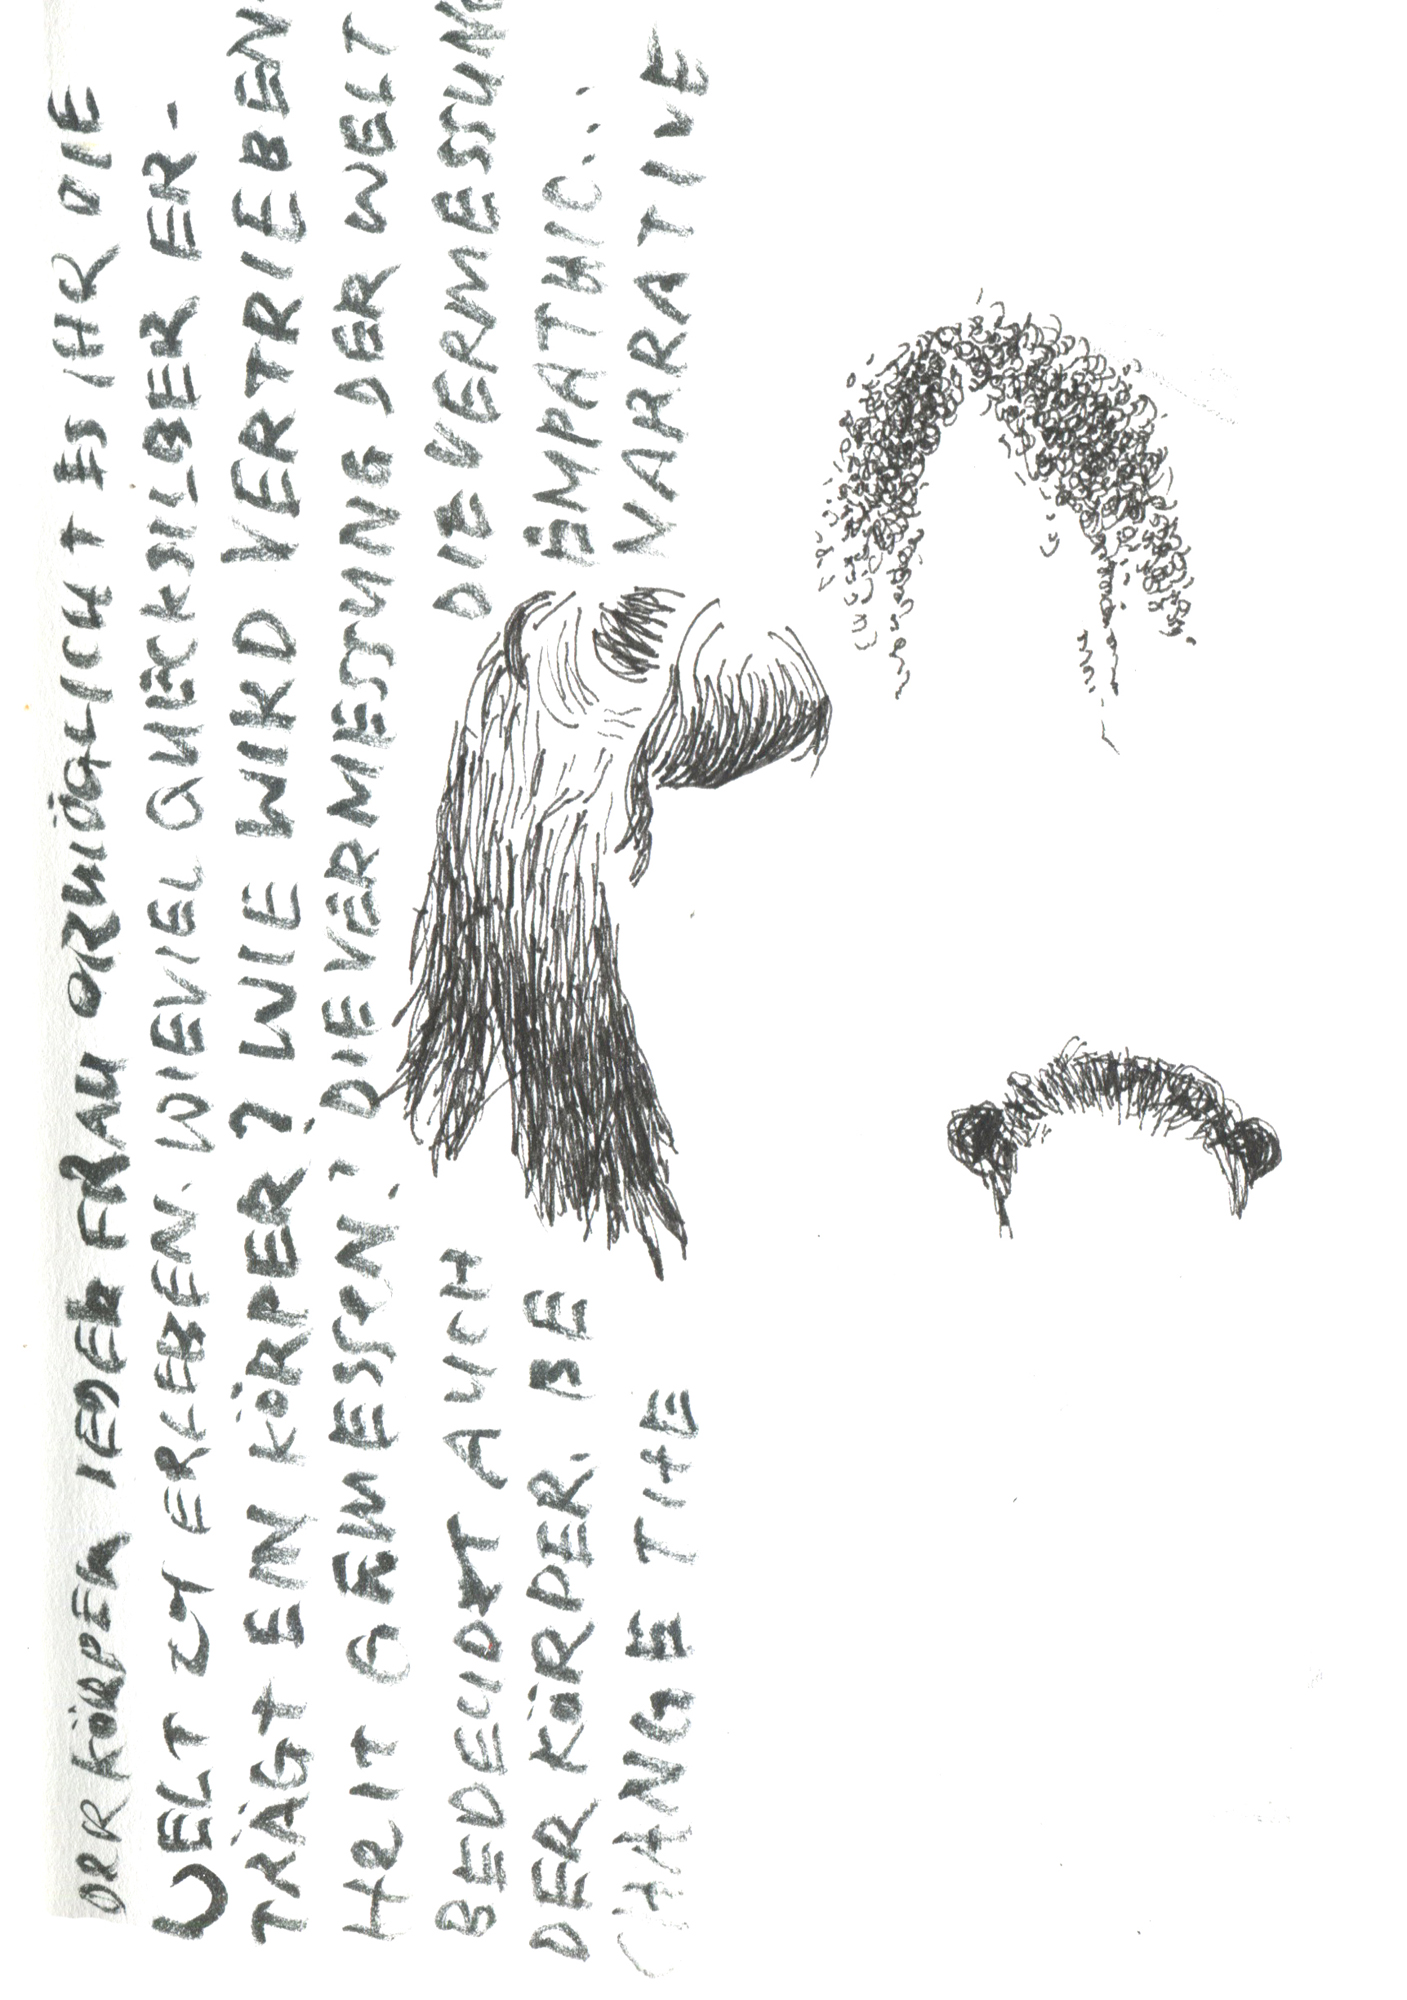 DER KÖRPER JEDER FRAU ERMÖGLICHT ES IHR DIE
WELT ZU ERLEBEN. WIEVIEL QUECKSILBER ER-
TRÄGT EIN KÖRPER? WIE WIRD VERTRIEBEN
HEIT GEMESSEN? DIE VERMESSUNG DER WELT
BEDEUDET AUCH DIE VERMESSUNG
DER KÖRPER. BE EMPATHIC...
CHANGE THE NARRATIVE